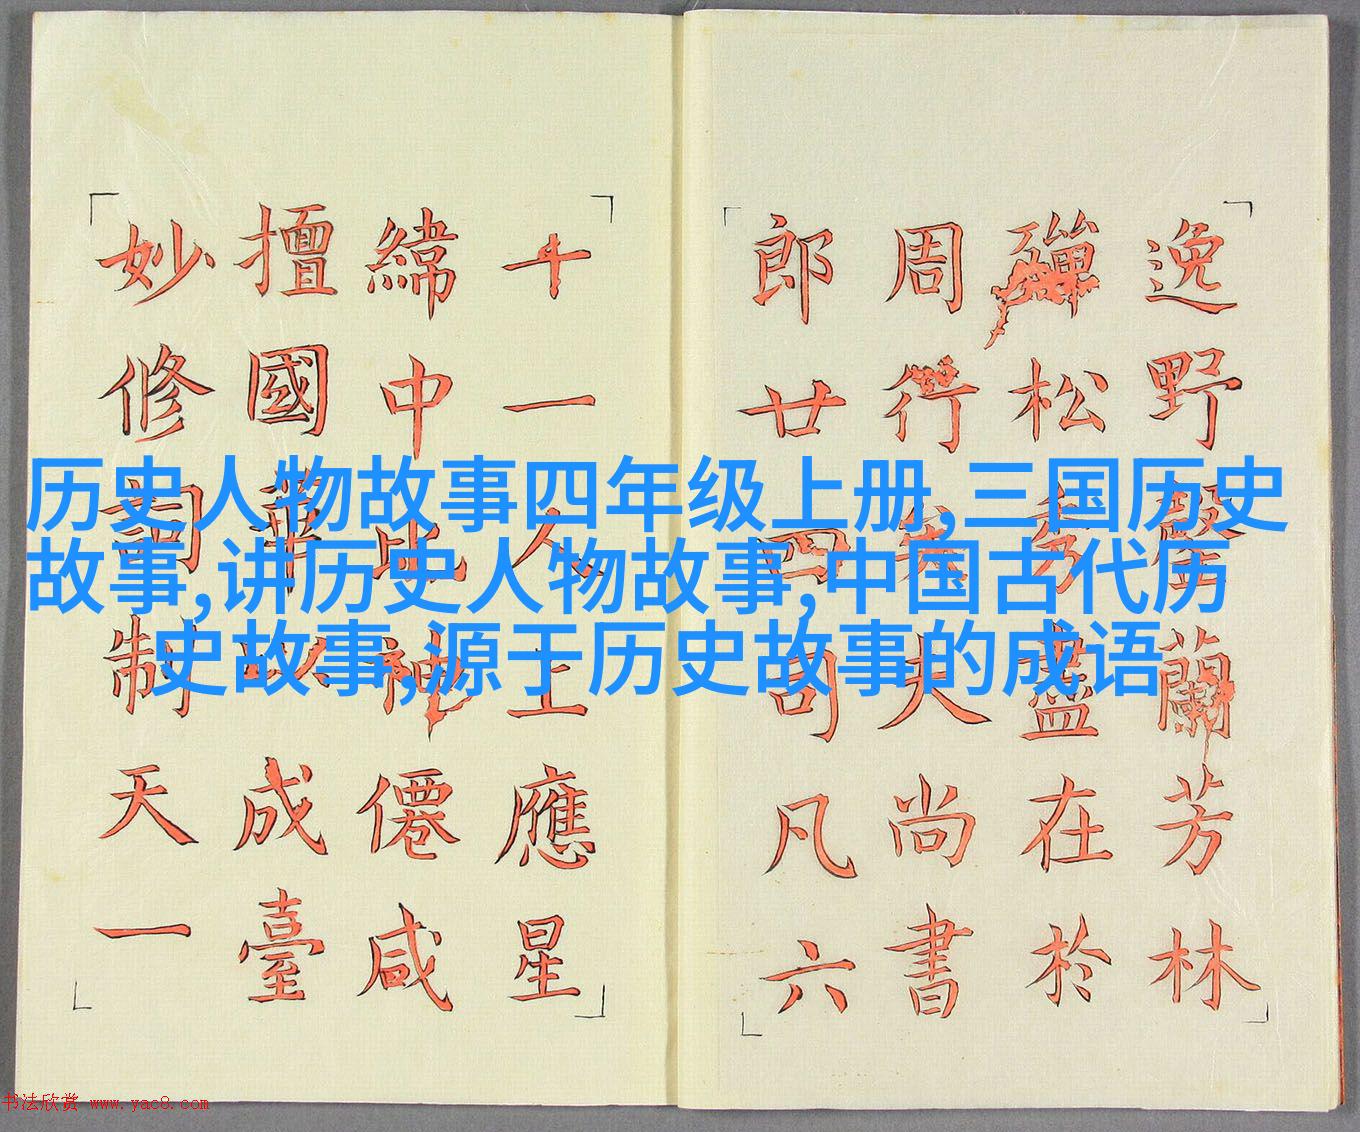 逸野罄蘭芳林
殫松秀盡在於
周行矣夫尚書
郎廿四司凡六
十一人上應星
緯中比神僊咸
擅國華以成臺
妙修詞制天一
历史人物故事四年级上册,三国历史
故事,讲历史人物故事,中国古代历
史故事,源于历史故事的成语
书法欣赏 www.yac8.com